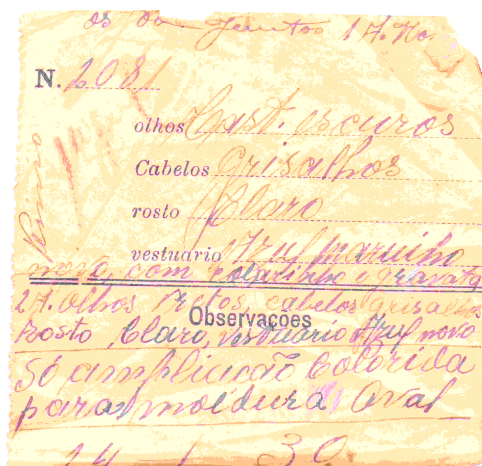 os dois juntos 1 A. No
N. 2081
olhos Cast. escuros
Cabelos Grisalhos
rosto Claro
vestuario Azul marinho
novo, com colarinho e gravata
2 A. olhos Pretos, cabelos Grisalhos
Observações
Rosto Claro, vestuario Azul novo
Só ampliação Colorida
para moldura Oval
14 1 30